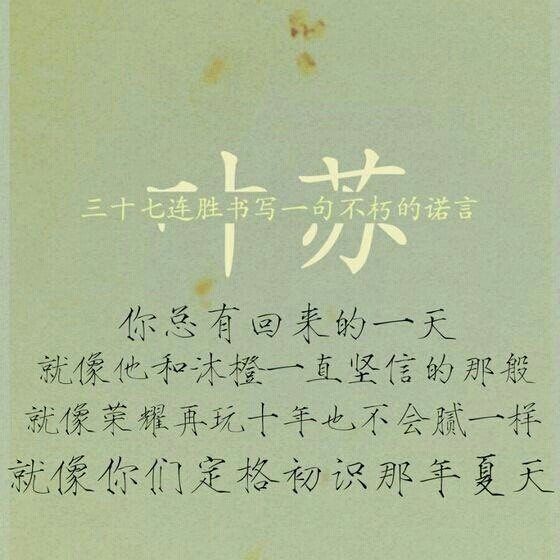 叶苏
三十七连胜书写一句不朽的诺言
你总有回来的一天
就像他和沐橙一直坚信的那般
就像荣耀再玩十年也不会腻一样
就像你们定格初识那年夏天